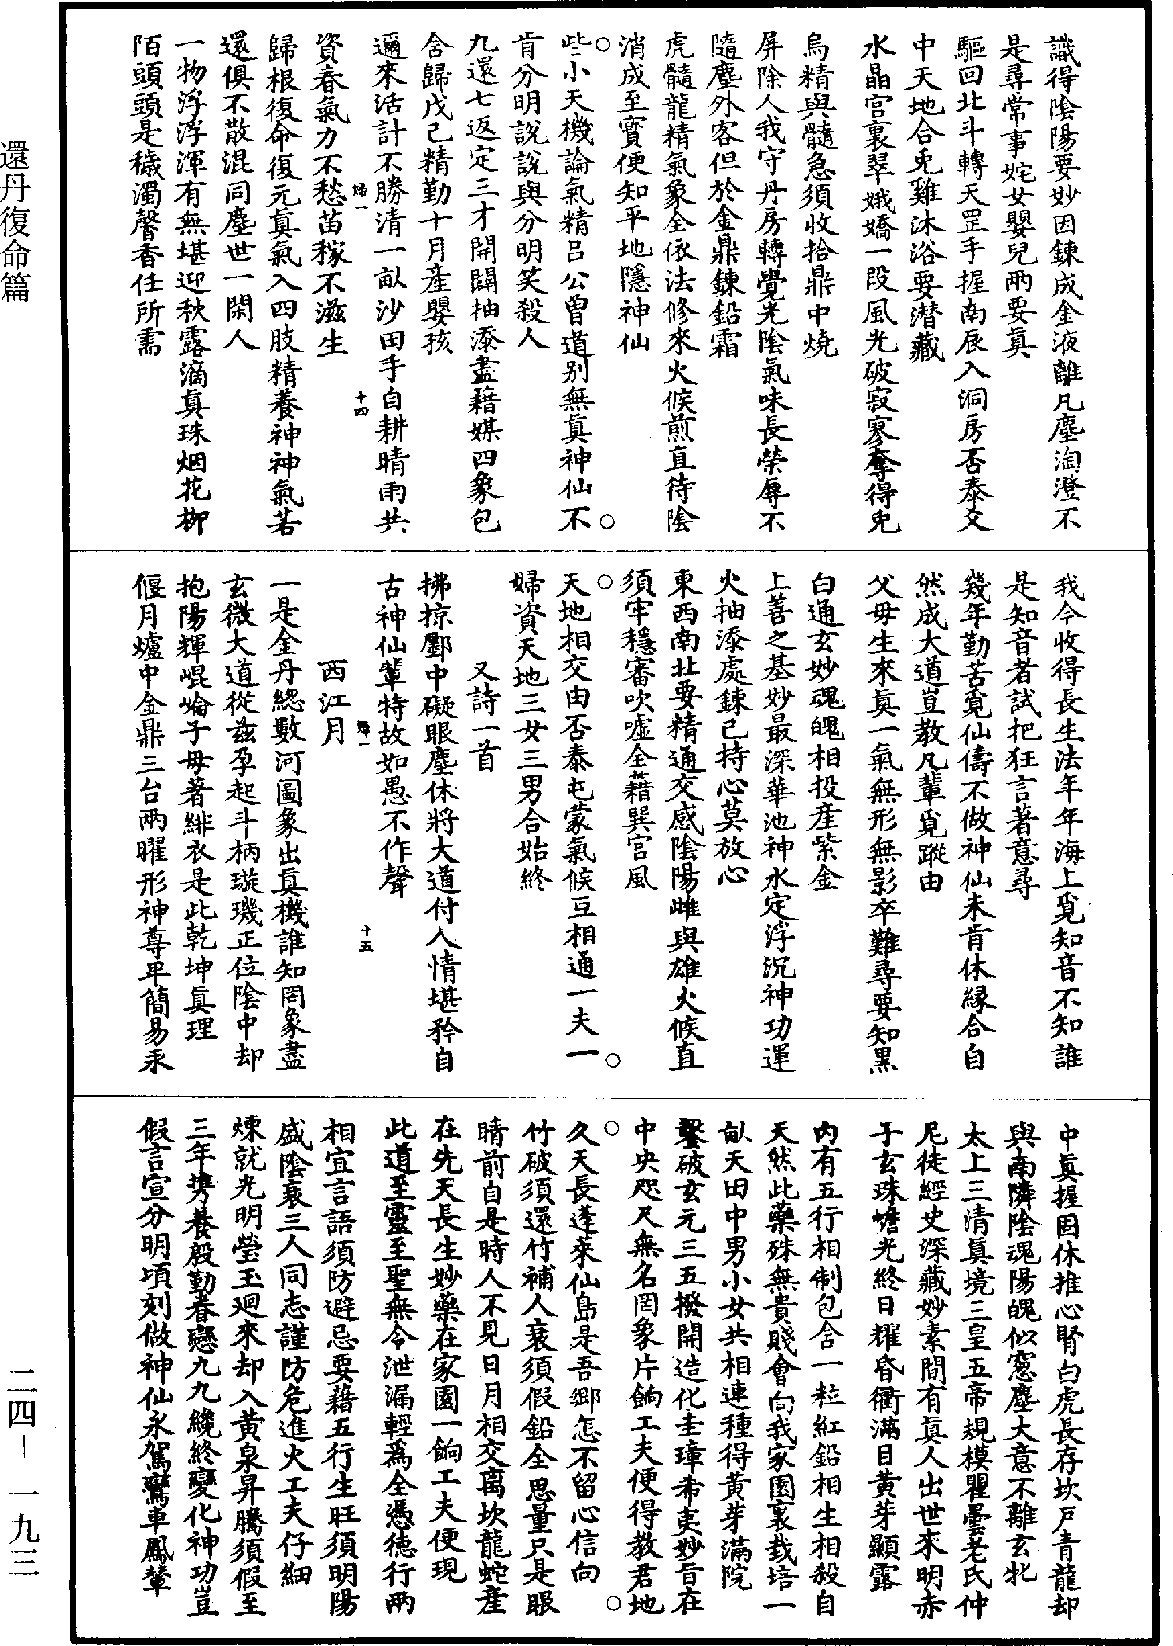 還丹復命篇
識得陰陽要妙因鍊成金液離凡塵淘澄不
是尋常事姹女嬰兒兩要真
驅回北斗轉天罡手握南辰入洞房否泰交
中天地合兔雞沐浴要潛藏
水晶宮裏翠娥嬌一段風光破寂寥奪得兔
烏精與髓急須收拾鼎中燒
屏除人我守丹房轉覺光陰氣味長榮辱不
隨塵外客但於金鼎鍊鉛霜
虎髓龍精氣象全依法修來火候煎直待陰
消成至寶便知平地隱神仙
些小天機論氣精呂公曾道别無真神仙不
肯分明說說與分明笑殺人
九還七返定三才開闢抽添盡藉媒四象包
含歸戊己精勤十月產嬰孩
邇來活計不勝清一畝沙田手自耕晴雨共
資春氣力不愁苗稼不滋生
歸根復命復元真氣入四肢精養神神氣若
還俱不散混同塵世一閑人
一物浮浮渾有無堪迎秋露滴真珠烟花柳
陌頭頭是穢濁馨香任所需
十四
我今收得長生法年年海上覓知音不知誰
是知音者試把狂言著意尋
幾年勤苦覓仙儔不做神仙未肯休緣合自
然成大道豈教凡輩覓蹤由
父母生來真一氣無形無影卒難尋要知黑
白通玄妙魂魄相投產紫金
上善之基妙最深華池神水定浮沉神功運
火抽添處鍊己持心莫放心
東西南北要精通交感陰陽雌與雄火候直
須牢穩審吹噓全藉巽宮風
天地相交由否泰屯蒙氣候互相通一夫一
婦資天地三女三男合始終
又詩一首
拂掠酆中礙眼塵休將大道付人情堪矜自
古神仙輩特故如愚不作聲
西江月
十五
一是金丹總數河圖象出真機誰知罔象盡
玄微大道從茲孕起斗柄璇璣正位陰中却
抱陽輝崐崘子母著緋衣是此乾坤真理
偃月爐中金鼎三台兩曜形神尊平簡易汞
中真握固休推心腎白虎長存坎戶青龍却
與南鄰陰魂陽魄似窻塵大意不離玄牝
太上三清真境三皇五帝規模瞿曇老氏仲
尼徒經史深藏妙素間有真人出世來明赤
子玄珠蟾光終日耀昏衢滿目黃芽顯露
內有五行相制包含一粒紅鉛相生相殺自
天然此藥殊無貴賤會向我家園裏栽培一
畝天田中男小女共相連種得黃芽滿院
鑿破玄元三五撥開造化圭璋希夷妙旨在
中央咫尺無名罔象片餉工夫便得教君地
久天長蓬萊仙島是吾鄉怎不留心信向
竹破須還竹補人衰須假鉛全思量只是眼
睛前自是時人不見日月相交离坎龍蛇產
在先天長生妙藥在家園一餉工夫便現
此道至靈至聖無令泄漏輕爲全憑德行兩
相宜言語須防避忌要藉五行生旺須明陽
盛陰衰三人同志謹防危進火工夫仔細
煉就光明瑩玉迴來却入黃泉昇騰須假至
三年携養殷勤眷戀九九纔終變化神功豈
假言宣分明頃刻做神仙永駕鸞車鳳輦
二四－一九三